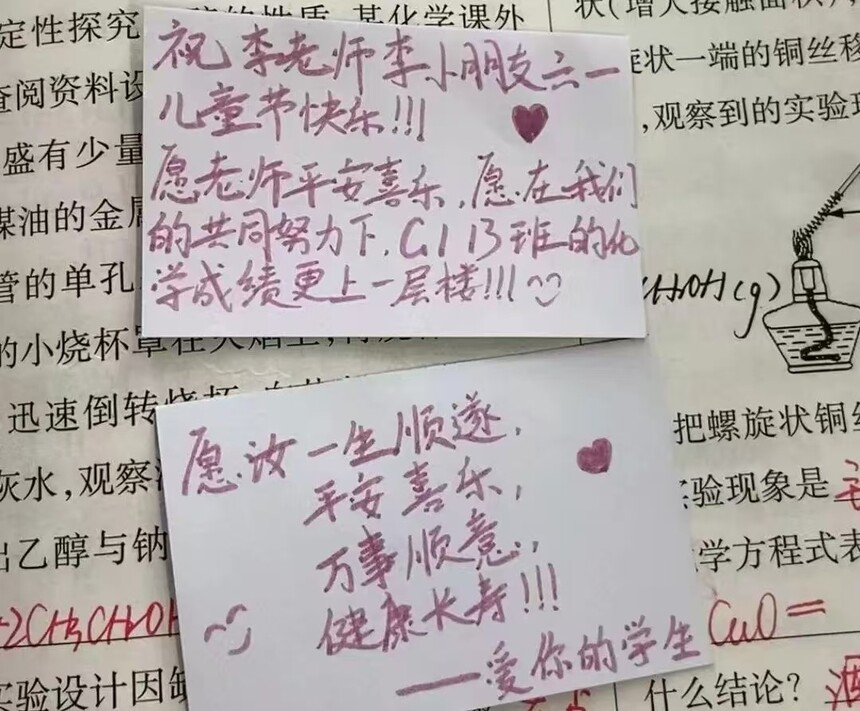 定性探究
的性质
某化学课外
查阅资料设
盛有少量
煤油的金属
管的单孔
的小烧杯罩在火焰上
迅速倒转烧杯
灰水,观察
出乙醇与钠
2CH3CH2OH
实验设计因缺
祝李老师李小朋友六一
儿童节快乐!!!
愿老师平安喜乐,愿在我们
的共同努力下,G113班的化
学成绩更上一层楼!!!
愿汝一生顺遂,
平安喜乐,
万事顺意,
健康长寿!!!
——爱你的学生
状(增大接触面积),
旋状一端的铜丝移
,观察到的实验现
CH3OH(g)
把螺旋状铜丝
实验现象是
学方程式表
CuO=
什么结论?